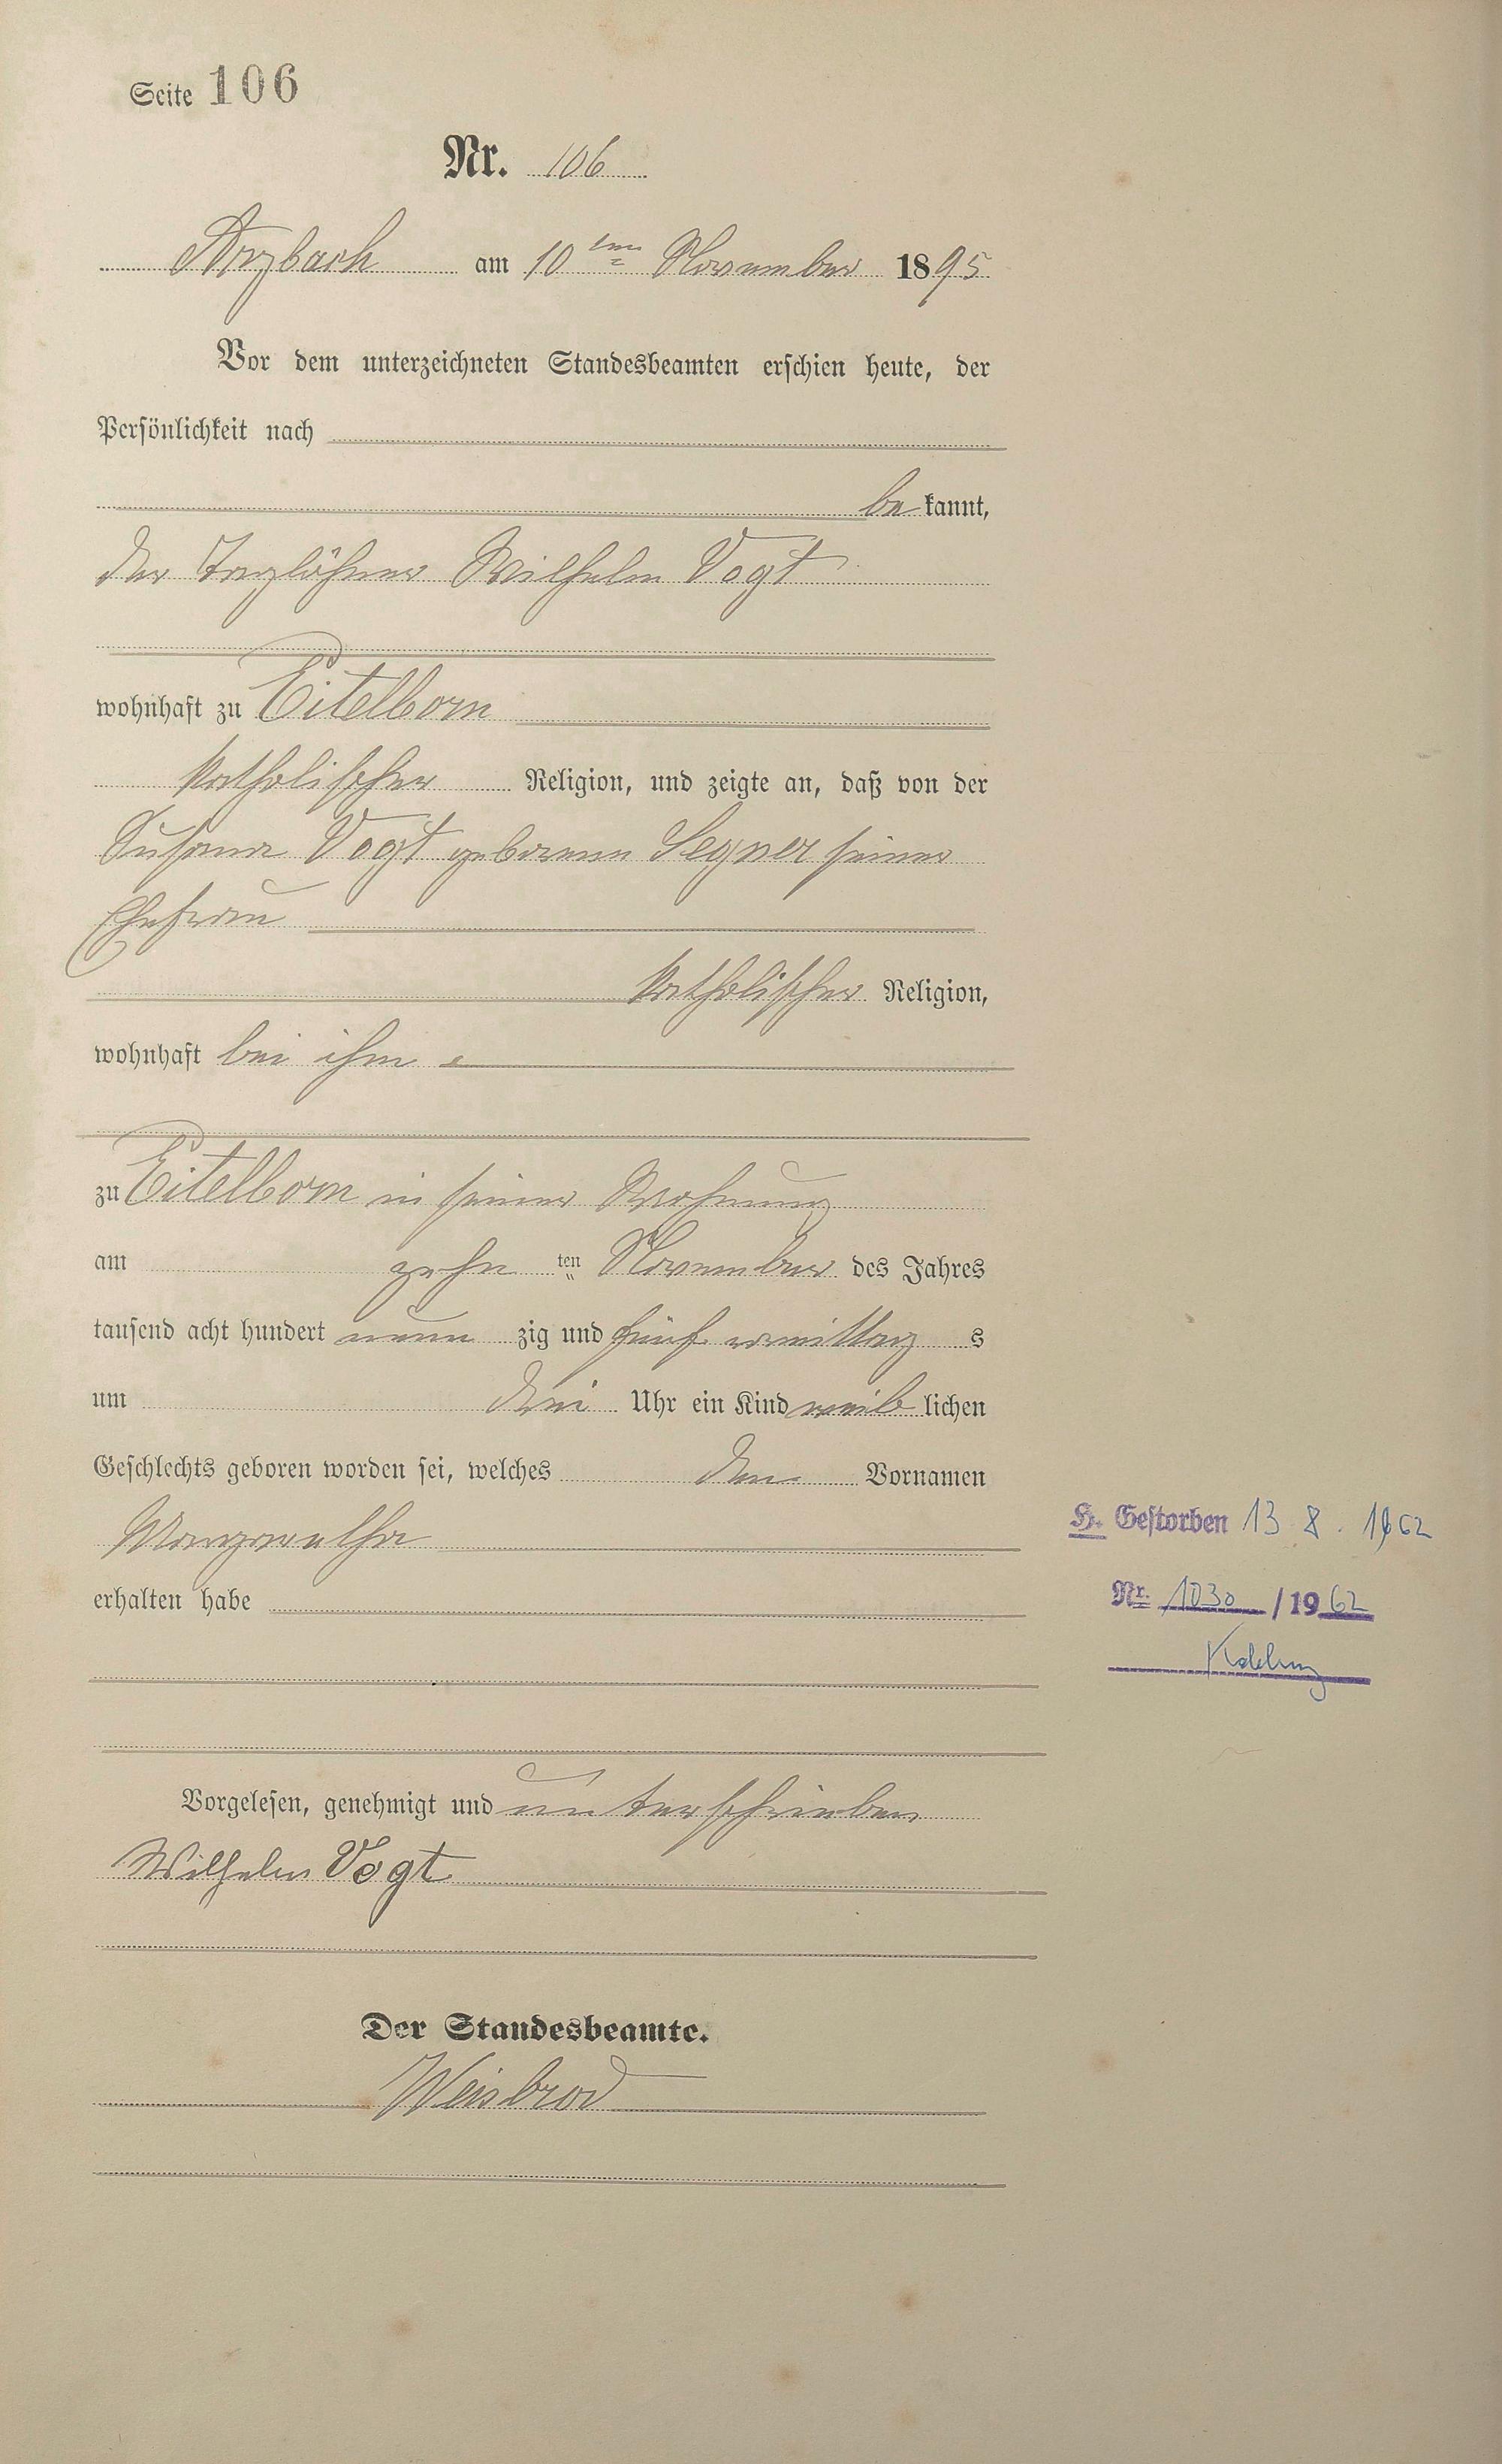 Seite 106
Nr. 106
Arzbach am 10ten November 1895
Vor dem unterzeichneten Standesbeamten erschien heute, der
Persönlichkeit nach
bekannt,
der Taglöhner Wilhelm Vogt
wohnhaft zu Eitelborn
katholischer Religion, und zeigte an, daß von der
Susana Vogt geborene Segner seiner
Ehefrau
katholischer Religion,
wohnhaft bei ihm
zu Eitelborn in seiner Wohnung
am zehn ten November des Jahres
tausend acht hundert neun zig und fünf vormittag s
um drei Uhr ein Kind weib lichen
Geschlechts geboren worden sei, welches den Vornamen
Margaretha
erhalten habe
H. Gestorben 13. 8. 1962
Nr. 1030 / 1962
Koblenz
Vorgelesen, genehmigt und unterschrieben
Wilhelm Vogt
Der Standesbeamte.
Weisbrod